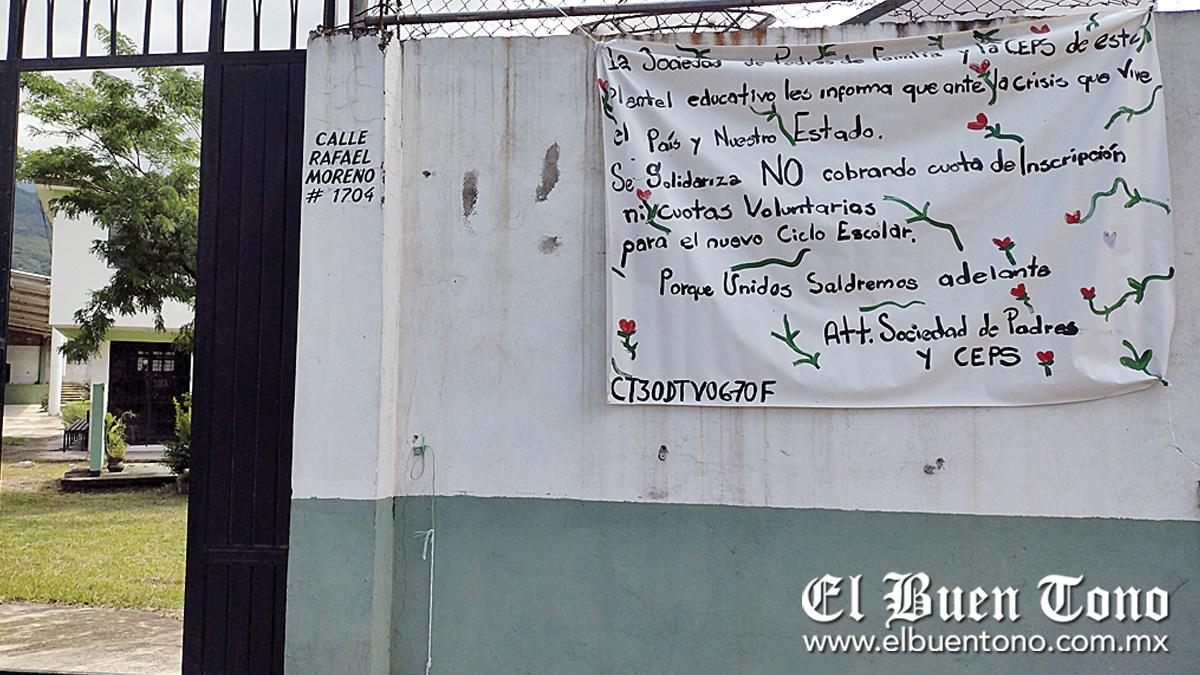 CALLE
RAFAEL
MORENO
# 1704
la Sociedad de Padres de Familia y la CEPS de este
Plantel educativo les informa que ante la crisis que vive
el País y Nuestro Estado.
Se Solidariza NO cobrando cuota de Inscripción
ni cuotas Voluntarias
para el nuevo Ciclo Escolar.
Porque Unidos Saldremos adelante
Att. Sociedad de Padres
y CEPS
CT30DTV0670F
El Buen Tono
www.elbuentono.com.mx